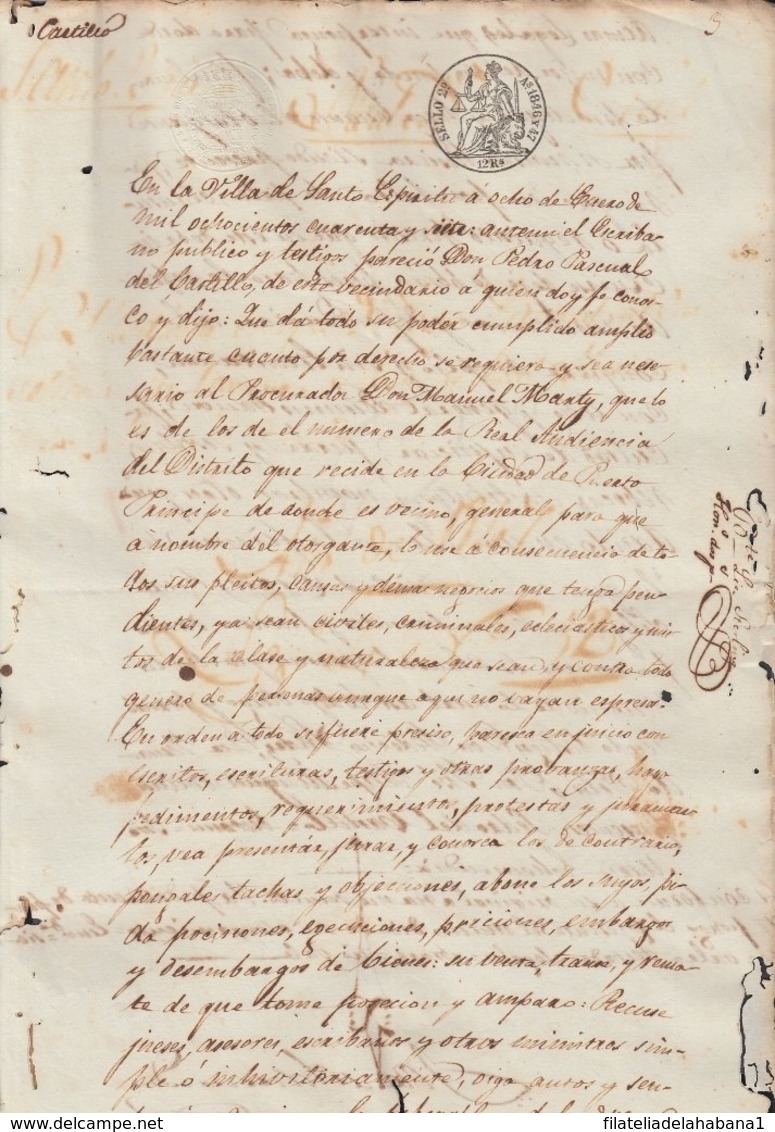 Castillo
5
SELLO 2º Aˢ 1846 Y 47
12 Rˢ
En la Villa de Santo Espiritu á ocho de Enero de
mil ochocientos cuarenta y siete: antemi el Escriba-
no publico y testigos pareció Don Pedro Pascual
del Castillo, de este vecindario á quien doy fe conos-
co y dijo: Que dá todo su podér cumplido amplio
bastante cuanto por derecho se requiera y sea nese-
sario al Procurador Don Manuel Marty, que lo
es de los de el número de la Real Audiencia
del Distrito que recide en la Ciudad de Puerto
Principe de donde es vecino, general para que
á nombre del otorgante, lo use á consecuencia de to-
dos sus pleitos, causas y demas negocios que tenga pen-
dientes, ya sean civiles, criminales, eclesiasticos y mis-
tos de la clase y naturaleza que sean, y contra todo
genero de personas aunque aqui no vayan espresas.
En orden á todo si fuere presiso, paresca en juicio con
escritos, escrituras, testigos y otras probanzas, haga
pedimentos, requerimientos, protestas y juramen-
tos, vea presentár, jurar, y conosca los de contrario,
pongales tachas y objecciones, abone los suyos, pi-
da pociciones, egecuciones, priciones, embargos
y desembargos de bienes: su venta, trance, y rema-
te de que tome pocecion y amparo: Recuse
jueses, asesores, escribanos y otros ministros sim-
ple ó
, oiga autos y sen-
delcampe.net
filateliadelahabana1